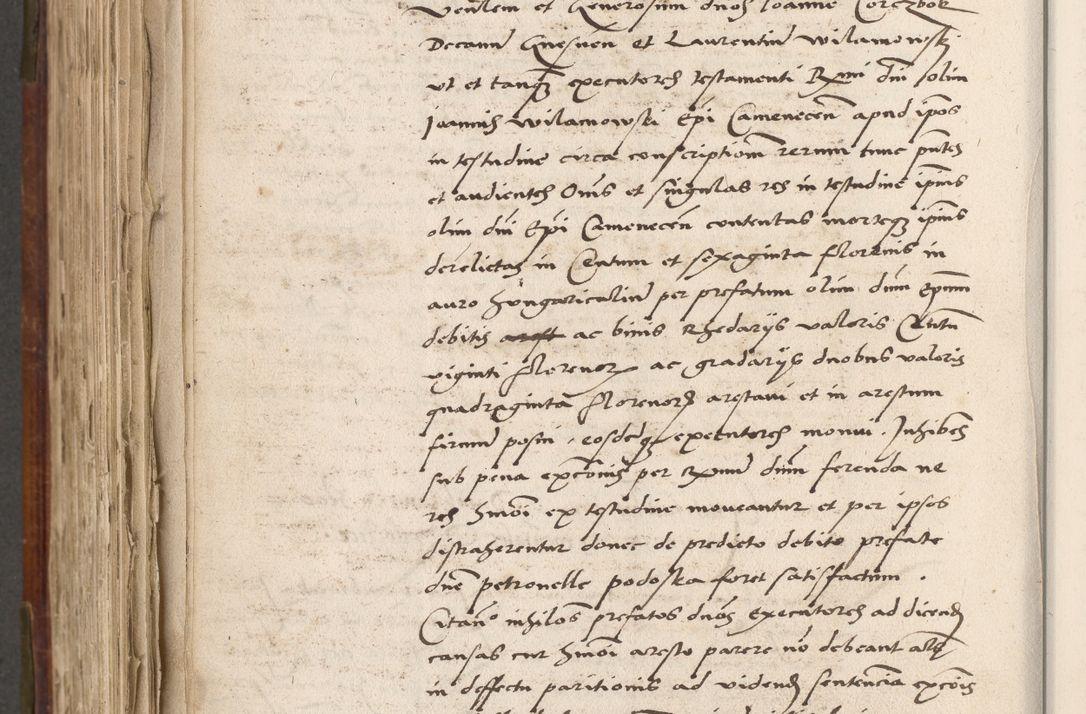 Venlem et Generosum dnos Joanne Corczbok
Decanu Gnesnen et Laurentiu Wilamowski
ut et tanqz executores testamenti Rmi dni olim
Joannis Wilamowski Epi Camenecen apud ipos
in testudine circa conscriptiom rerum tunc pntes
et audientes Oms et singulas res in testudine ipius
olim dni Epi Camenecen contentas morteqz ipius
derelictas in Centum et sexaginta florenis in
auro hungaricaliu per prefatum olim dnm Epum
debitis ac binis Rhedarijs valoris Centu
viginti florenor ac gradarijs duobus valoris
quadraginta florenor arestavi et in arestum
firmu posui, eosdeqz executores monui. Inhibens
sub pena excois per Rmu dnm ferenda ne
res hmoi ex testudine moveantur et per ipsos
distraherentur donec de predicto debito prefate
dne petronelle podoska foret satisfactum.
Citao inhilos prefatos dnos Executores ad dicend
causas cur hmoi aresto parere no debeant
in deffectu paritionis ad vidend sentencia excois